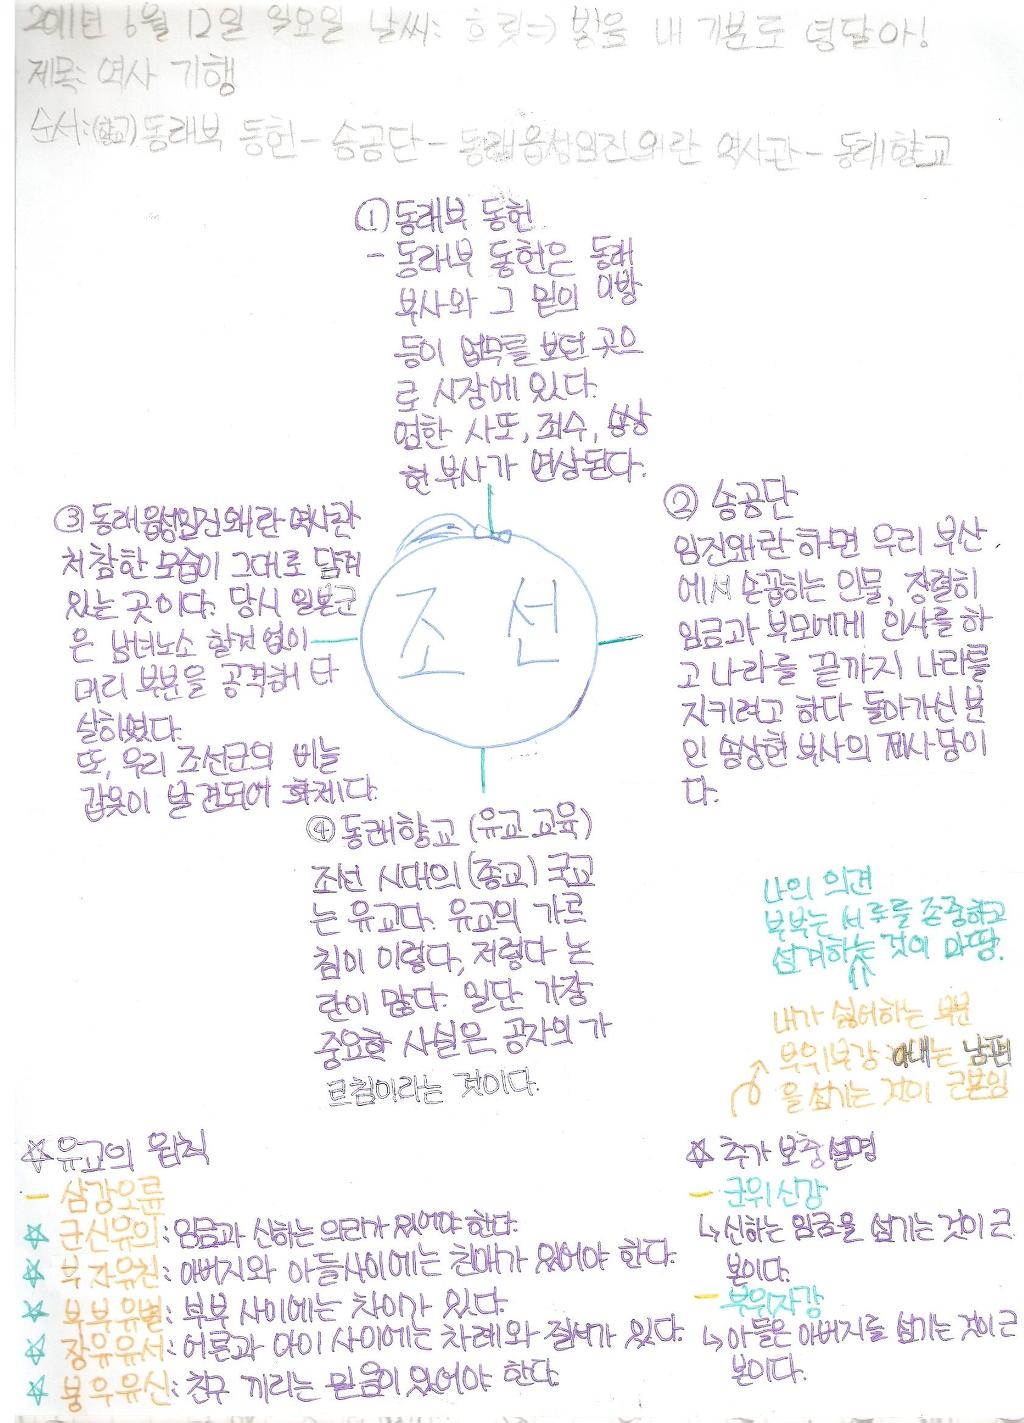 2011년 6월 12일 일요일 날씨: 흐릿⇒ 밝음 내 기분도 덩달아!
제목: 역사 기행
순서:(학교)동래부 동헌-송공단-동래읍성임진왜란 역사관-동래향교
① 동래부 동헌
- 동래부 동헌은 동래
부사와 그 밑의 이방
등이 업무를 보던 곳으
로 시장에 있다.
엄한 사또, 죄수, 송상
현 부사가 연상된다.
② 송공단
임진왜란 하면 우리 부산
에서 손꼽히는 인물, 장렬히
임금과 부모에게 인사를 하
고 나라를 끝까지 나라를
지키려고 하다 돌아가신 분
인 송상현 부사의 제사망이
다.
③ 동래읍성임진왜란 역사관
처참한 모습이 그대로 담겨
있는 곳이다. 당시 일본군
은 남녀노소 할것 없이
머리 부분을 공격해 다
살히였다.
또, 우리 조선군의 비늘
갑옷이 발견되어 화제다.
조선
④ 동래향교 (유교 교육)
조선 시대의 (종교) 국교
는 유교다. 유교의 가르
침이 이렇다, 저렇다 논
란이 많다. 일단 가장
중요한 사실은 공자의 가
르침이라는 것이다.
나의 의견
부부는 서로를 존중하고
섬겨하는 것이 마땅.
내가 싫어하는 부분
부위부강: 아내는 남편
을 섬기는 것이 근본임
☆ 유교의 원칙
- 삼강오륜
☆ 군신유의: 임금과 신하는 의리가 있어야 한다.
☆ 부자유친: 아버지와 아들사이에는 친애가 있어야 한다.
☆ 부부유별: 부부 사이에는 차이가 있다.
☆ 장유유서: 어른과 아이 사이에는 차례와 질서가 있다.
☆ 붕우유신: 친구 끼리는 믿음이 있어야 한다.
☆ 추가 보충설명
- 군위신강
↳ 신하는 임금을 섬기는 것이 근
본이다.
- 부위자강
↳ 아들은 아버지를 섬기는 것이 근
본이다.